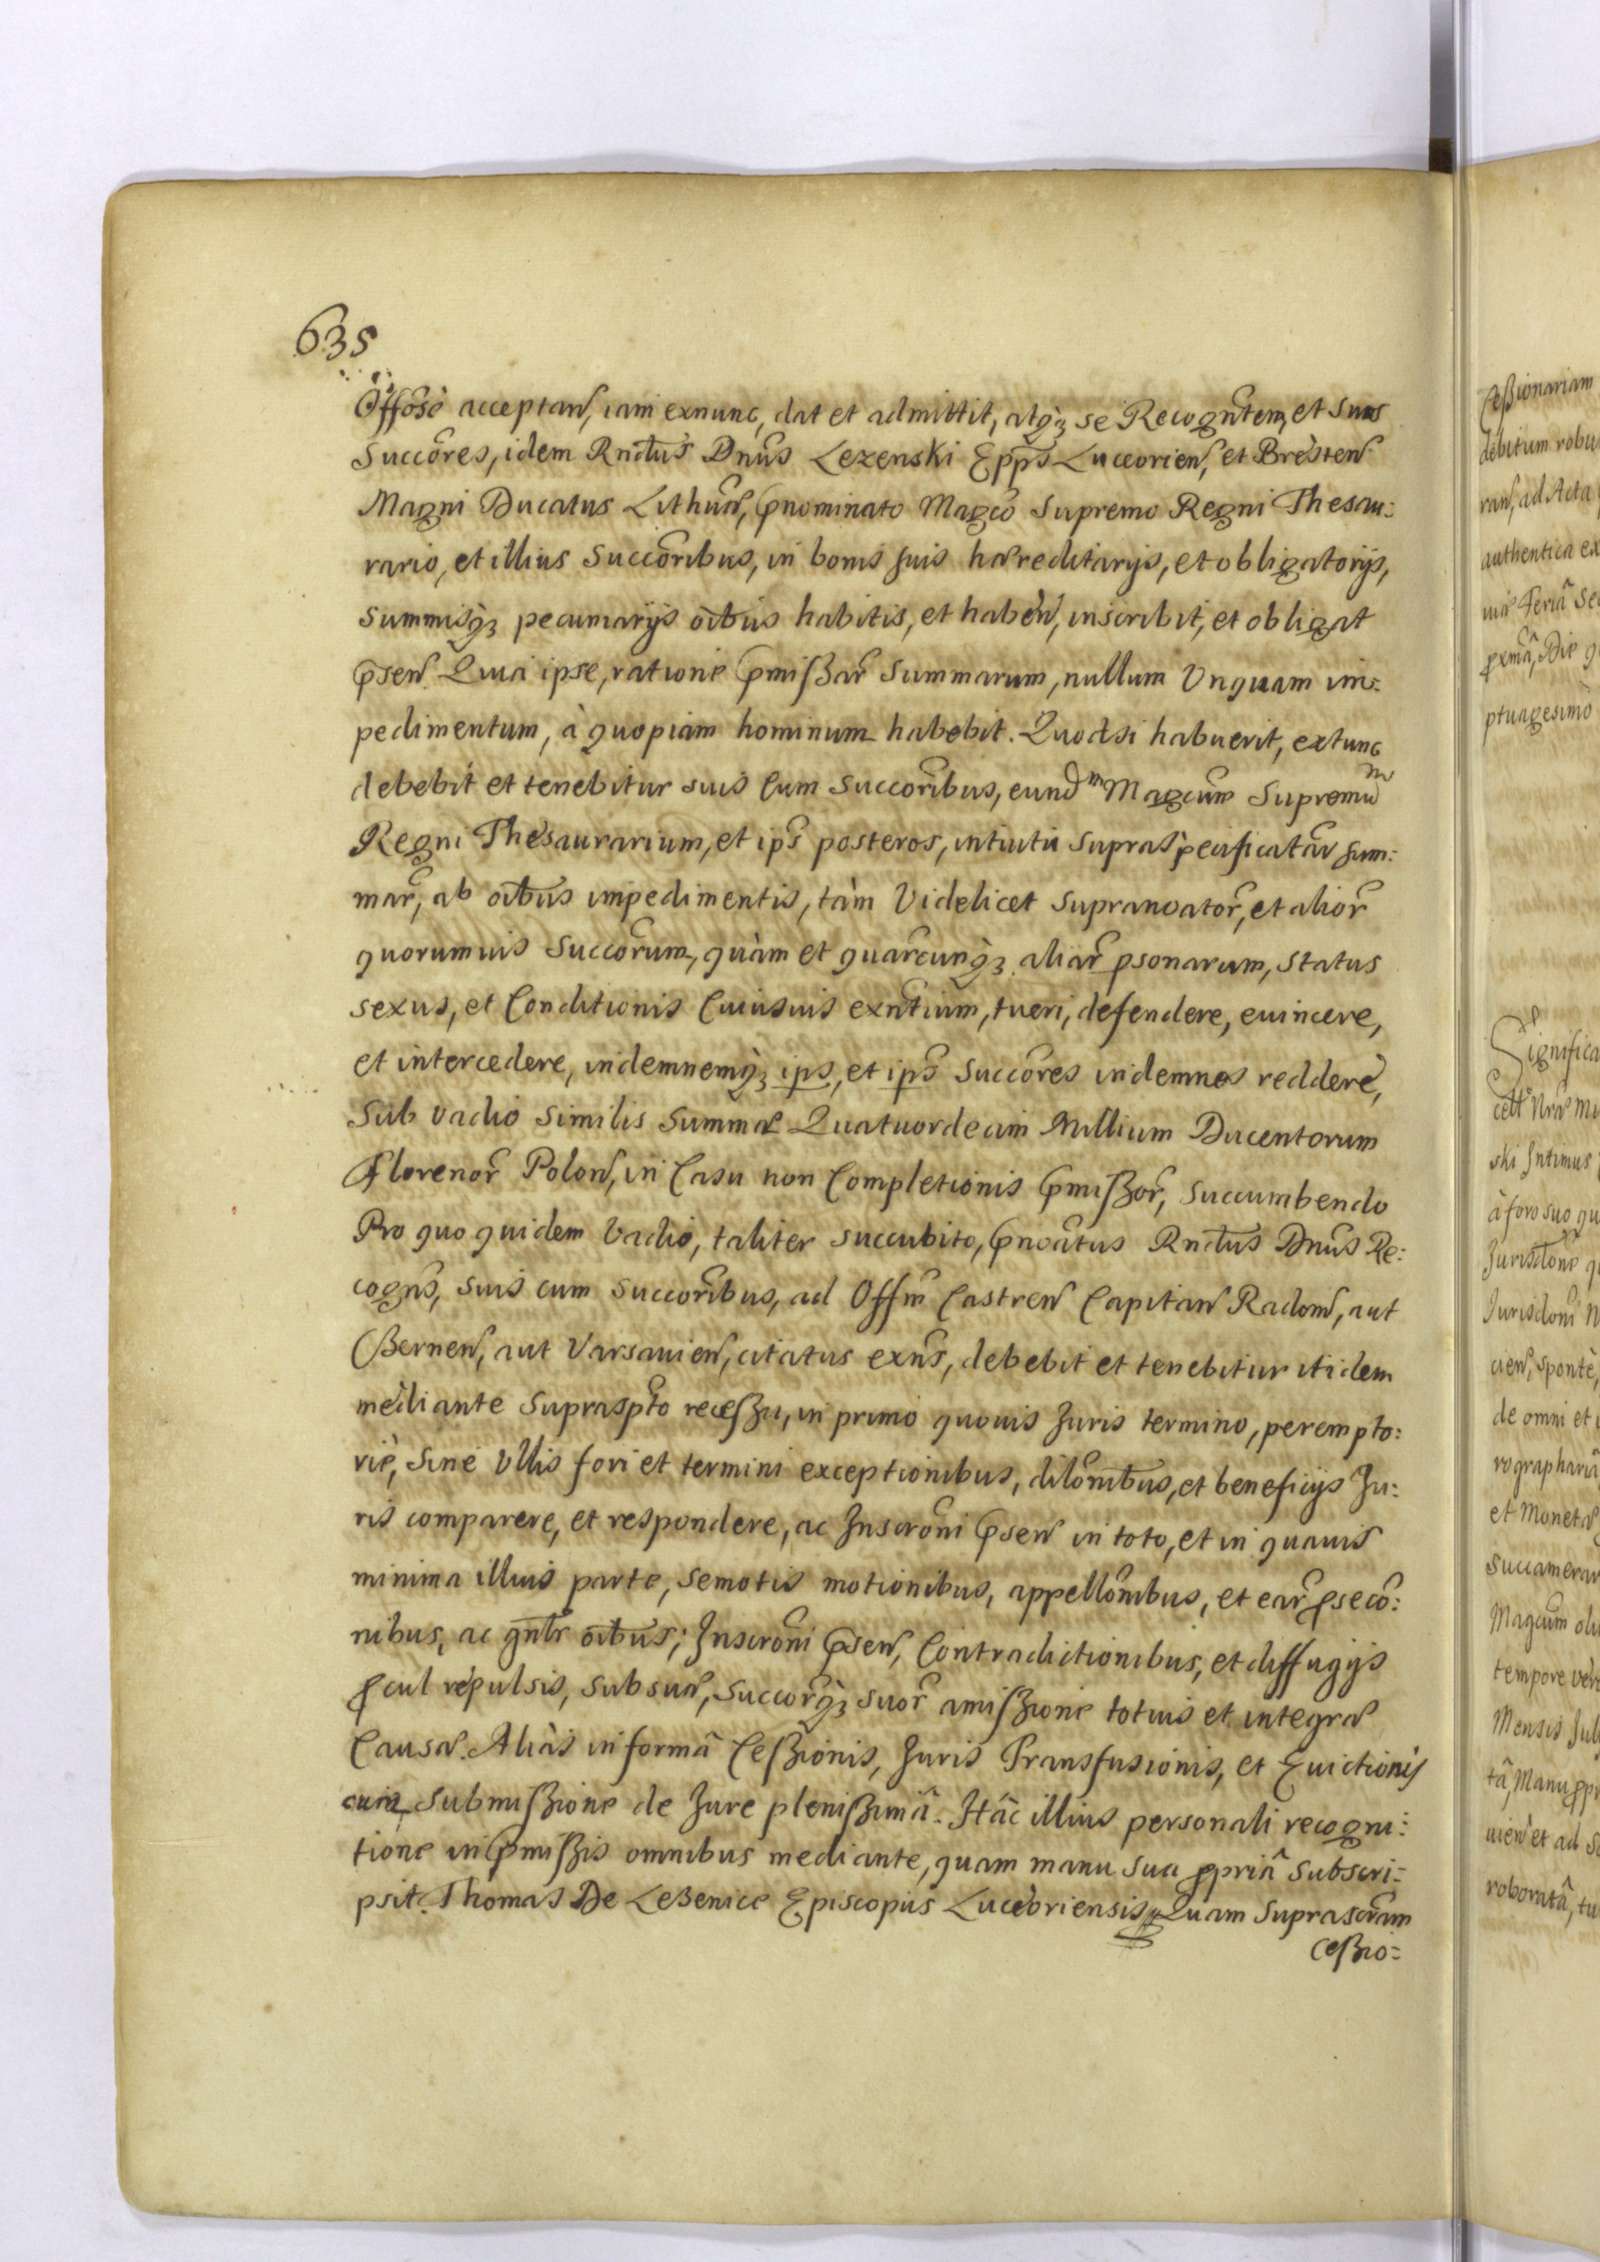 635
Offosè acceptan, iam exnunc, dat et admittit, atq3 se Recogntem, et suos
Succores, idem Rndus Dnus Lezenski Epps Luceorien, et Bresten
Magni Ducatus Lithuan, pnominato Magco Supremo Regni Thesau:
rario, et illius Succoribus, in bonis suis hæreditarijs, et obligatorijs,
summisq3 pecuniarijs oibus habitis, et haben, inscribit, et obligat
psen. Quia ipse, ratione pmißar summarum, nullum Unquam im:
pedimentum, à quopiam hominum habebit. Quodsi habuerit, extunc
debebit et tenebitur suis Cum Succoribus, eundm Magcum Supremum
Regni Thesaurarium, et ips posteros, intuitu supraspecificatar sum:
mar, ab oibus impedimentis, tàm Videlicet supranoator, et alior
quorumuis Succorum, quàm et quarcunq3 aliar psonarum, status
sexus, et Conditionis Cuiusuis exntium, tueri, defendere, euincere,
et intercedere, indemnemq3 ips, et ips Succores indemnes reddere,
Sub vadio similis Summæ Quatuordecim Millium Ducentorum
Florenor Polon, in Casu non Completionis pmißor, succumbendo
Pro quo quidem Vadio, taliter succubito, pnoatus Rndus Dnus Re:
cogns, suis cum Succoribus, ad Offm Castren Capitan Radom, aut
Bernen, aut Varsauien, citatus exns, debebit et tenebitur itidem
mediante supraspto receßu, in primo quouis Juris termino, perempto:
riè, sine Ullis fori et termini exceptionibus, dilonibus, et beneficijs Ju:
ris comparere, et respondere, ac Inscroni psen in toto, et in quauis
minima illius parte, semotis motionibus, appellonibus, et ear pseco:
nibus, ac gntr oibus; Inscroni psen, Contradictionibus, et diffugijs
pcul repulsis, sub suæ, succorq3 suor amißione totius et integræ
Causæ. Aliàs in formâ Ceßionis, Juris Transfusionis, et Euictionis
cum submißione de Jure plenißimâ. Hâc illius personali recogni:
tione in pmißis omnibus mediante, quam manu sua ppriâ subscri:
psit. Thomas De Lezenice Episcopus Luceoriensis Quam suprascram
Ceßio:
Ceßionariam
debitum robu
ran, ad Acta
authentica ex
uiæ Feriâ Se
pxmâ, Die
ptuagesimo
Significa
ski Intimus
à foro suo qu
cien, sponte,
de omni et
rographariâ
et Monetæ
succamerar
Magcum oli
tempore verò
Mensis Jul
tâ, Manu ppr
uien et ad
roboratâ, tu